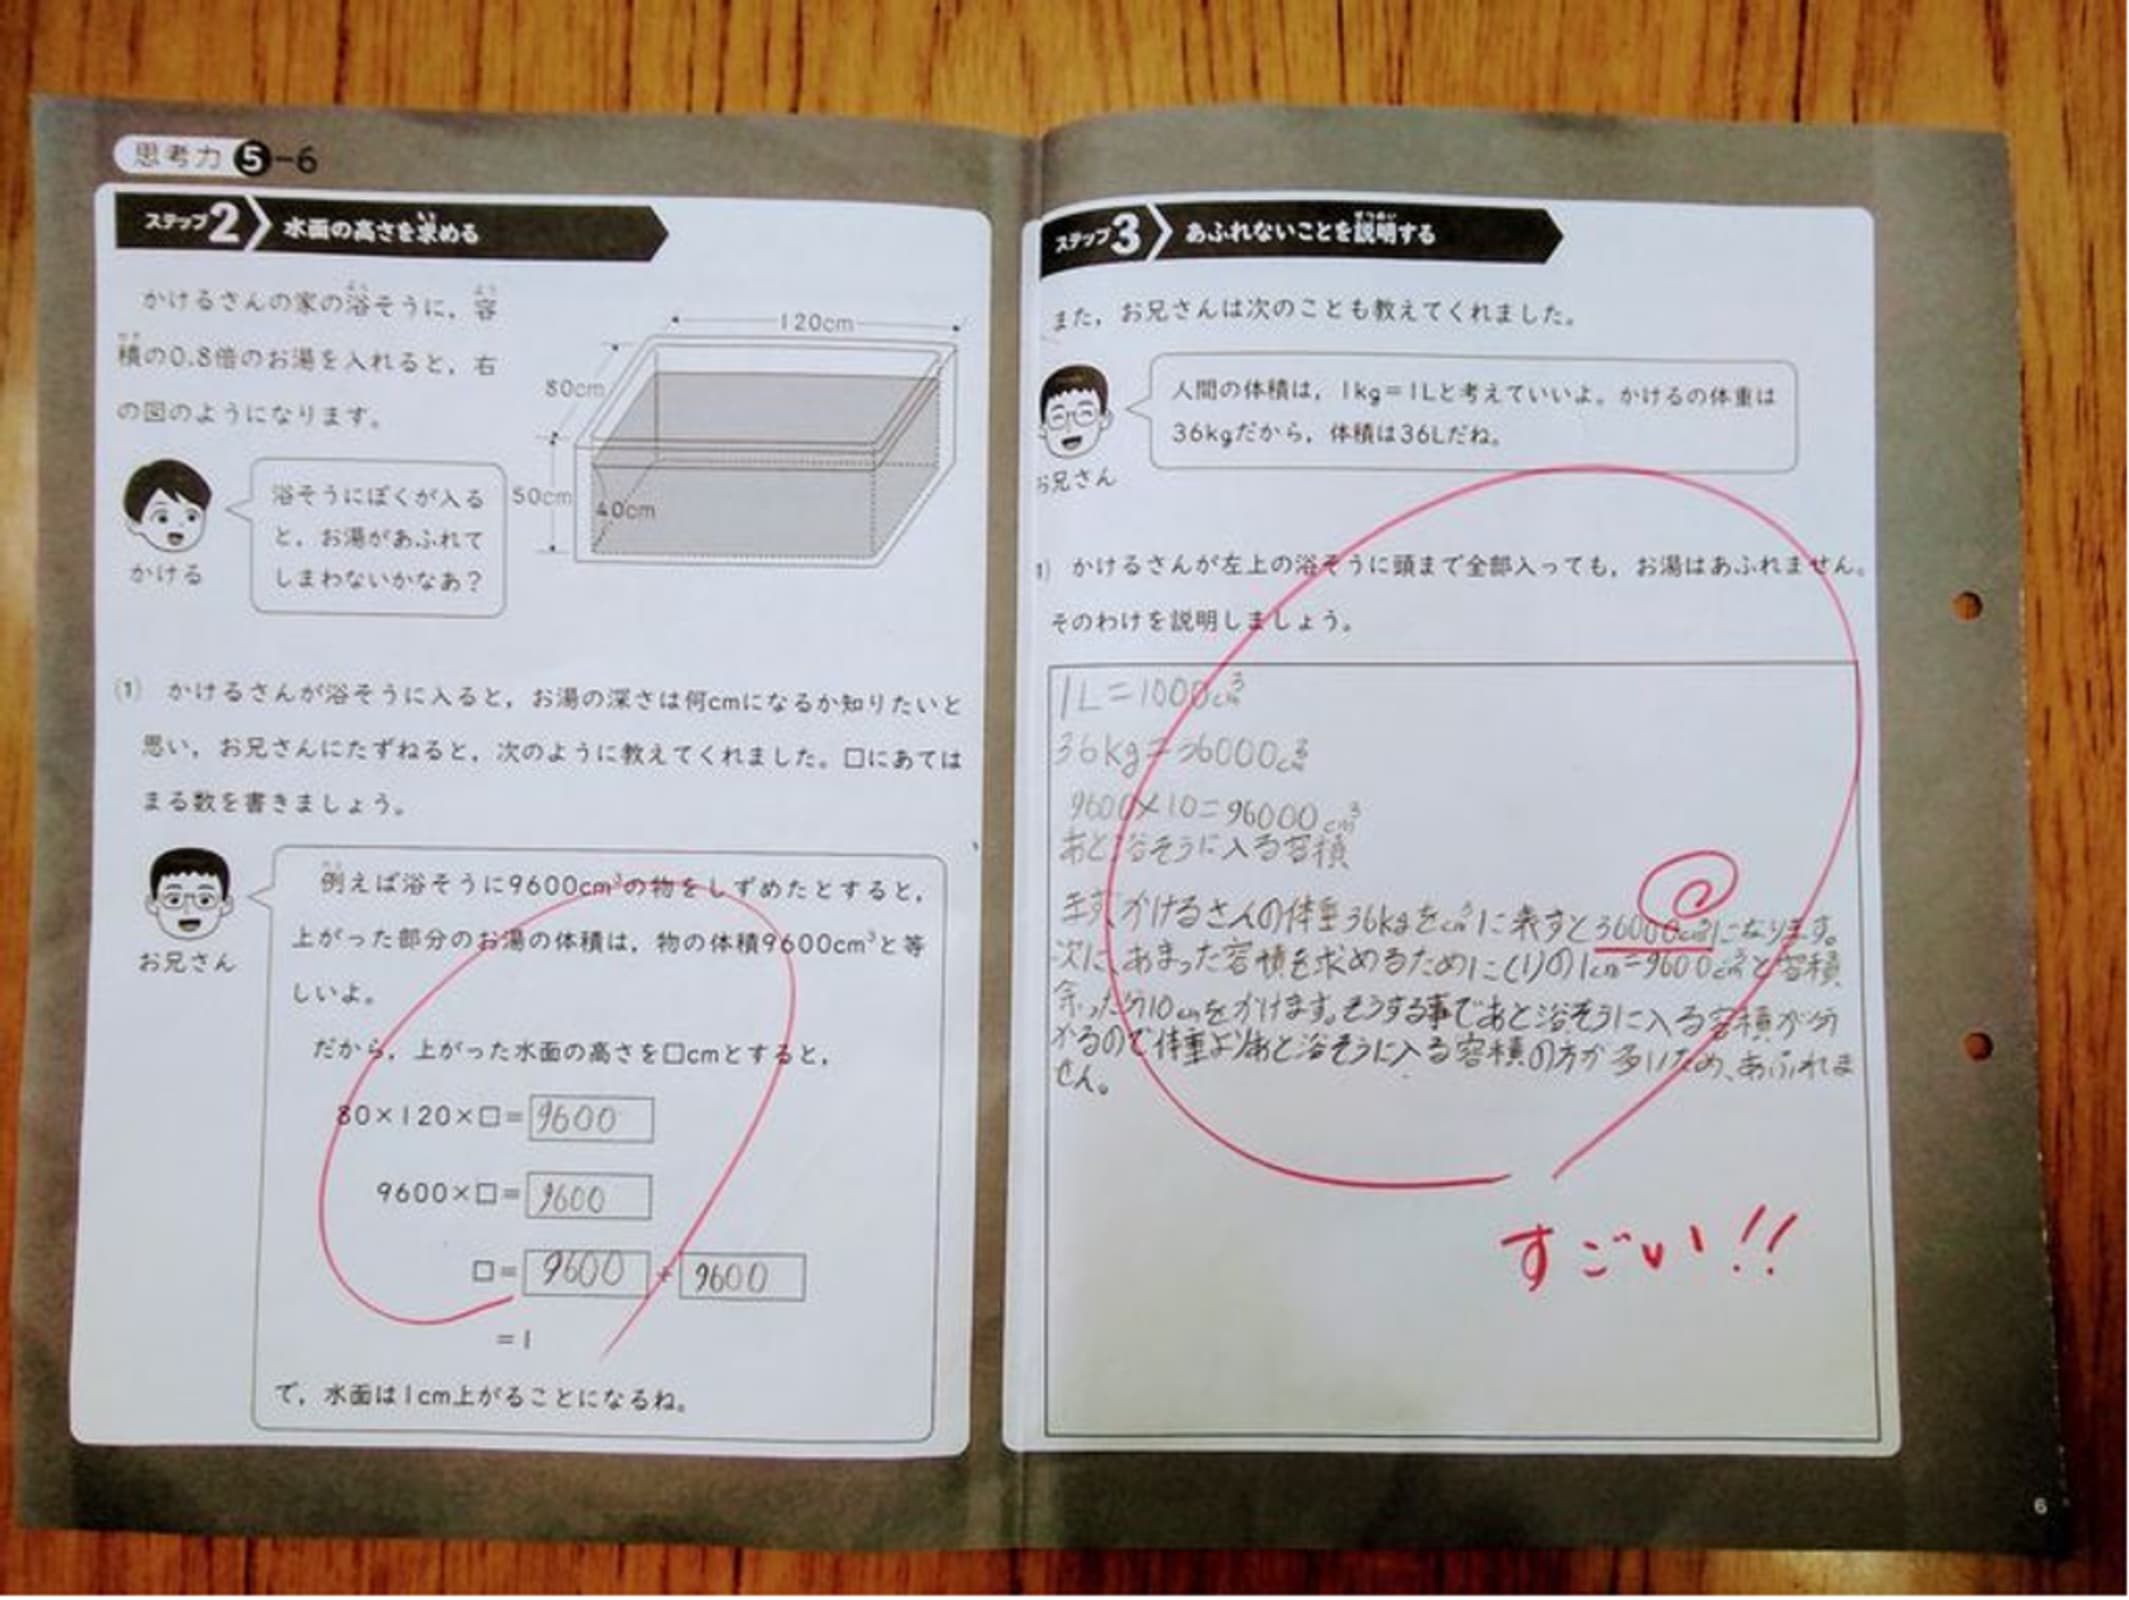 思考力 5-6
ステップ2 水面の高さを求める
かけるさんの家の浴そうに，容
積の0.8倍のお湯を入れると，右
の図のようになります。
120cm
80cm
50cm
40cm
浴そうにぼくが入る
と，お湯があふれて
しまわないかなあ？
かける
(1) かけるさんが浴そうに入ると，お湯の深さは何cmになるか知りたいと
思い，お兄さんにたずねると，次のように教えてくれました。□にあては
まる数を書きましょう。
お兄さん
例えば浴そうに9600cm³の物をしずめたとすると，
上がった部分のお湯の体積は，物の体積9600cm³と等
しいよ。
だから，上がった水面の高さを□cmとすると，
80×120×□=9600
9600×□=9600
□=9600÷9600
=1
で，水面は1cm上がることになるね。
ステップ3 あふれないことを説明する
また，お兄さんは次のことも教えてくれました。
人間の体積は，1kg=1Lと考えていいよ。かけるの体重は
36kgだから，体積は36Lだね。
お兄さん
1) かけるさんが左上の浴そうに頭まで全部入っても，お湯はあふれません。
そのわけを説明しましょう。
1L=1000cm³
36kg=36000cm³
9600×10=96000cm³
あと浴そうに入る容積
まず、かけるさんの体重36kgをcm³に表すと36000cm³になります。
次に、あまった容積を求めるために(1)の1cm=9600cm³と容積
余った分10cmをかけます。そうする事であと浴そうに入る容積が分
かるので体重よりあと浴そうに入る容積の方が多いため、あふれま
せん。
すごい!!
6